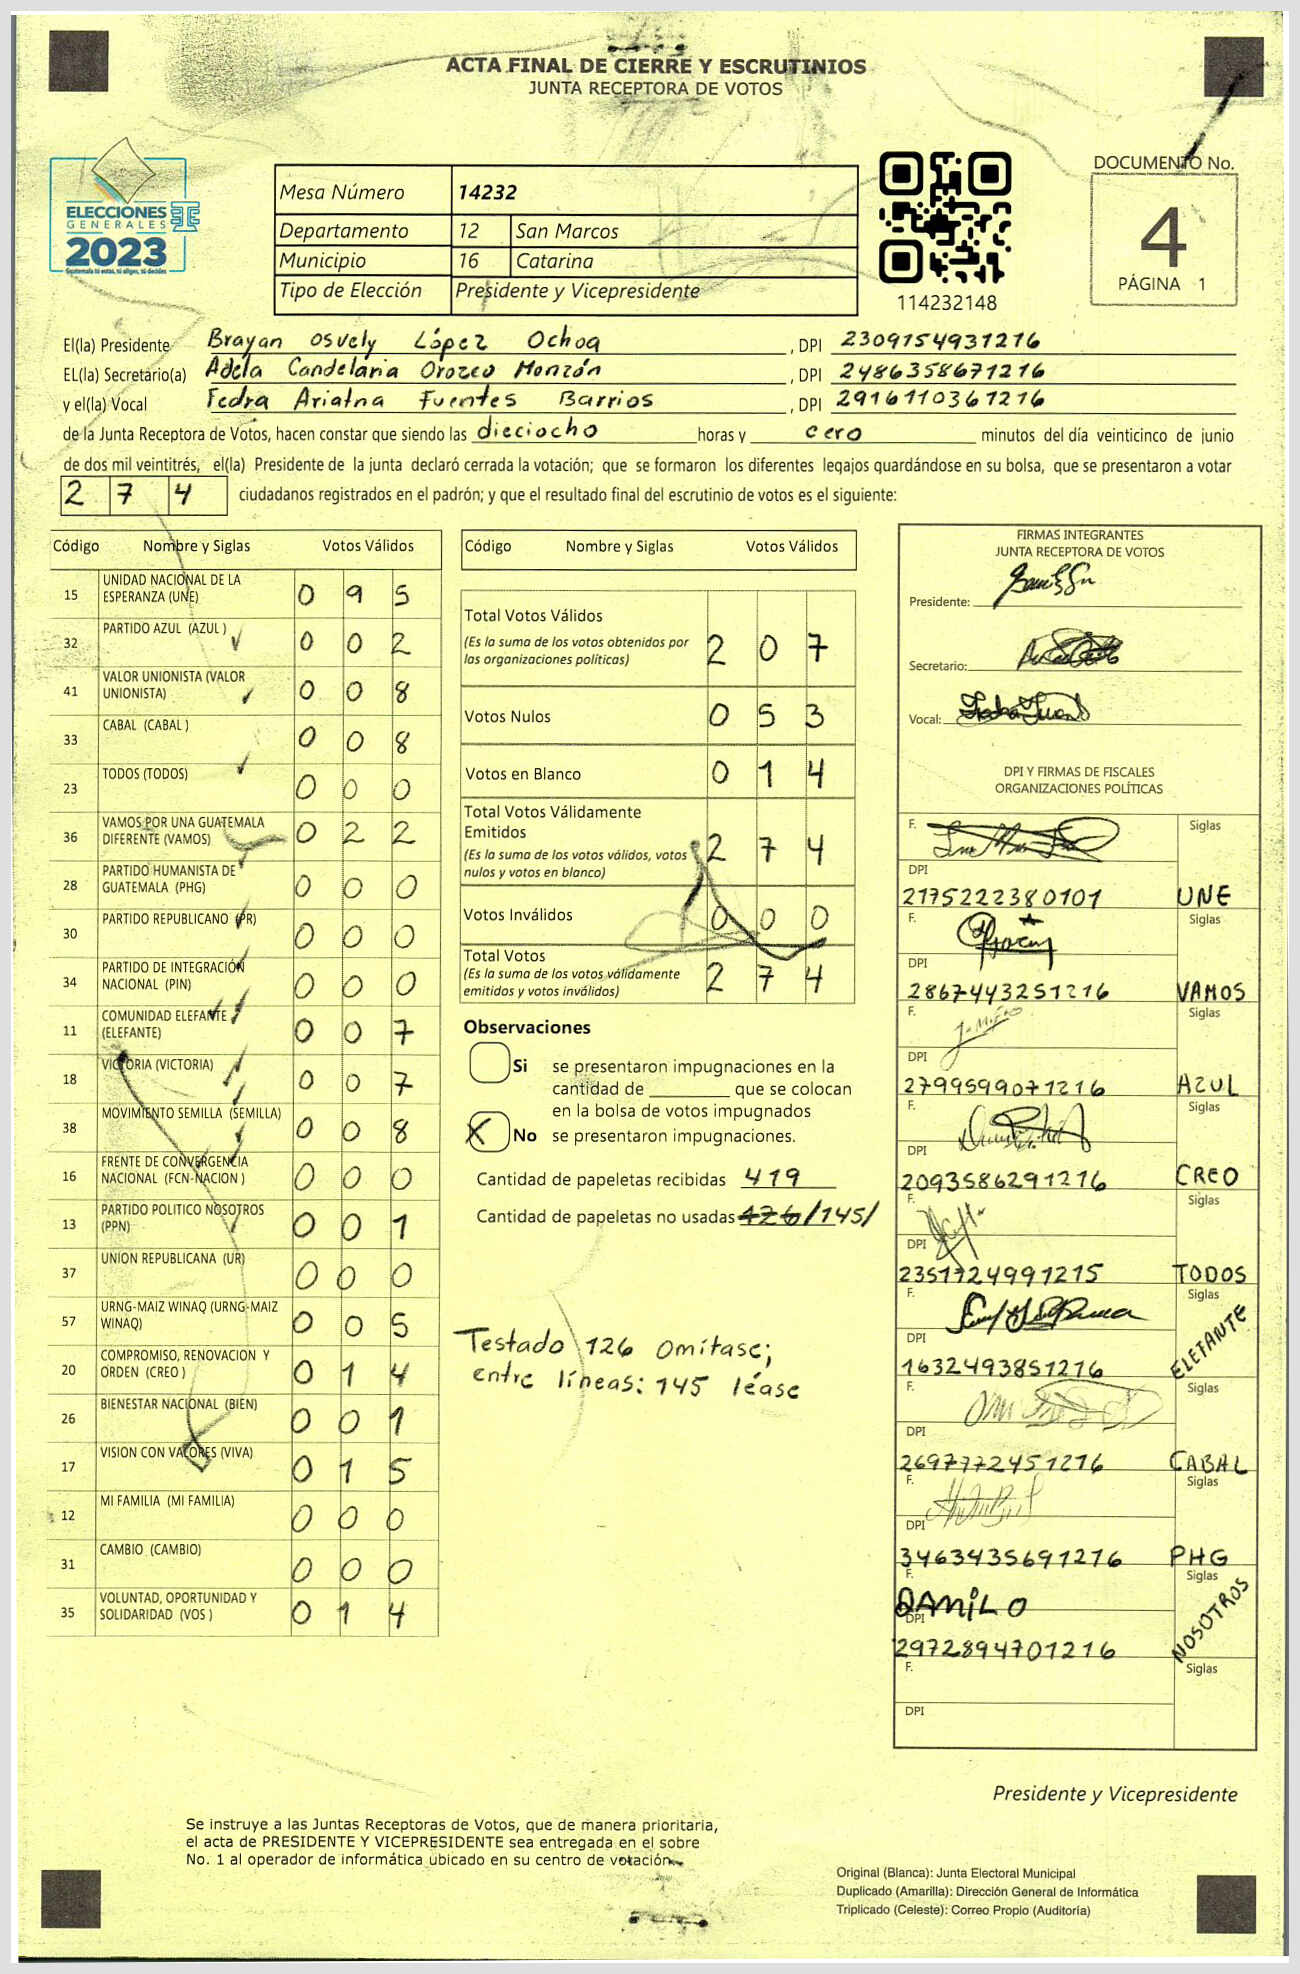 ACTA FINAL DE CIERRE Y ESCRUTINIOS
JUNTA RECEPTORA DE VOTOS
ELECCIONES
GENERALES
2023
Guatemala tú votas, tú eliges, tú decides
Mesa Número 14232
Departamento 12 San Marcos
Municipio 16 Catarina
Tipo de Elección Presidente y Vicepresidente
114232148
DOCUMENTO No.
4
PÁGINA 1
El(la) Presidente Brayan Osvely López Ochoa, DPI 2309154931216
EL(la) Secretario(a) Adela Candelaria Orozco Monzón, DPI 2486358671216
y el(la) Vocal Fedra Ariatna Fuentes Barrios, DPI 2916110361216
de la Junta Receptora de Votos, hacen constar que siendo las dieciocho horas y cero minutos del día veinticinco de junio
de dos mil veintitrés, el(la) Presidente de la junta declaró cerrada la votación; que se formaron los diferentes legajos quardándose en su bolsa, que se presentaron a votar
2 7 4 ciudadanos registrados en el padrón; y que el resultado final del escrutinio de votos es el siguiente:
Código Nombre y Siglas Votos Válidos
15 UNIDAD NACIONAL DE LA ESPERANZA (UNE) 0 9 5
32 PARTIDO AZUL (AZUL ) 0 0 2
41 VALOR UNIONISTA (VALOR UNIONISTA) 0 0 8
33 CABAL (CABAL ) 0 0 8
23 TODOS (TODOS) 0 0 0
36 VAMOS POR UNA GUATEMALA DIFERENTE (VAMOS) 0 2 2
28 PARTIDO HUMANISTA DE GUATEMALA (PHG) 0 0 0
30 PARTIDO REPUBLICANO (PR) 0 0 0
34 PARTIDO DE INTEGRACIÓN NACIONAL (PIN) 0 0 0
11 COMUNIDAD ELEFANTE (ELEFANTE) 0 0 7
18 VICTORIA (VICTORIA) 0 0 7
38 MOVIMIENTO SEMILLA (SEMILLA) 0 0 8
16 FRENTE DE CONVERGENCIA NACIONAL (FCN-NACION ) 0 0 0
13 PARTIDO POLITICO NOSOTROS (PPN) 0 0 1
37 UNION REPUBLICANA (UR) 0 0 0
57 URNG-MAIZ WINAQ (URNG-MAIZ WINAQ) 0 0 5
20 COMPROMISO, RENOVACION Y ORDEN (CREO ) 0 1 4
26 BIENESTAR NACIONAL (BIEN) 0 0 1
17 VISION CON VALORES (VIVA) 0 1 5
12 MI FAMILIA (MI FAMILIA) 0 0 0
31 CAMBIO (CAMBIO) 0 0 0
35 VOLUNTAD, OPORTUNIDAD Y SOLIDARIDAD (VOS ) 0 1 4
Código Nombre y Siglas Votos Válidos
Total Votos Válidos 2 0 7
(Es la suma de los votos obtenidos por
las organizaciones políticas)
Votos Nulos 0 5 3
Votos en Blanco 0 1 4
Total Votos Válidamente
Emitidos 2 7 4
(Es la suma de los votos válidos, votos
nulos y votos en blanco)
Votos Inválidos 0 0 0
Total Votos 2 7 4
(Es la suma de los votos válidamente
emitidos y votos inválidos)
Observaciones
Si se presentaron impugnaciones en la
cantidad de ________ que se colocan
en la bolsa de votos impugnados
X No se presentaron impugnaciones.
Cantidad de papeletas recibidas 419
Cantidad de papeletas no usadas 126 /145/
Testado 126 omítase;
entre líneas: 145 léase
FIRMAS INTEGRANTES
JUNTA RECEPTORA DE VOTOS
Presidente:
Secretario:
Vocal:
DPI Y FIRMAS DE FISCALES
ORGANIZACIONES POLÍTICAS
F. Siglas
DPI
2175222380101 UNE
F. Siglas
DPI
2867443251216 VAMOS
F. Siglas
DPI
2799599071216 AZUL
F. Siglas
DPI
2093586291216 CREO
F. Siglas
DPI
2351724991215 TODOS
F. Siglas
DPI
1632493851216 ELEFANTE
F. Siglas
DPI
2697772451216 CABAL
F. Siglas
DPI
3463435691216 PHG
F. Siglas
DANILO
DPI
2972894701216 NOSOTROS
F. Siglas
DPI
Presidente y Vicepresidente
Se instruye a las Juntas Receptoras de Votos, que de manera prioritaria,
el acta de PRESIDENTE Y VICEPRESIDENTE sea entregada en el sobre
No. 1 al operador de informática ubicado en su centro de votación.
Original (Blanca): Junta Electoral Municipal
Duplicado (Amarilla): Dirección General de Informática
Triplicado (Celeste): Correo Propio (Auditoría)